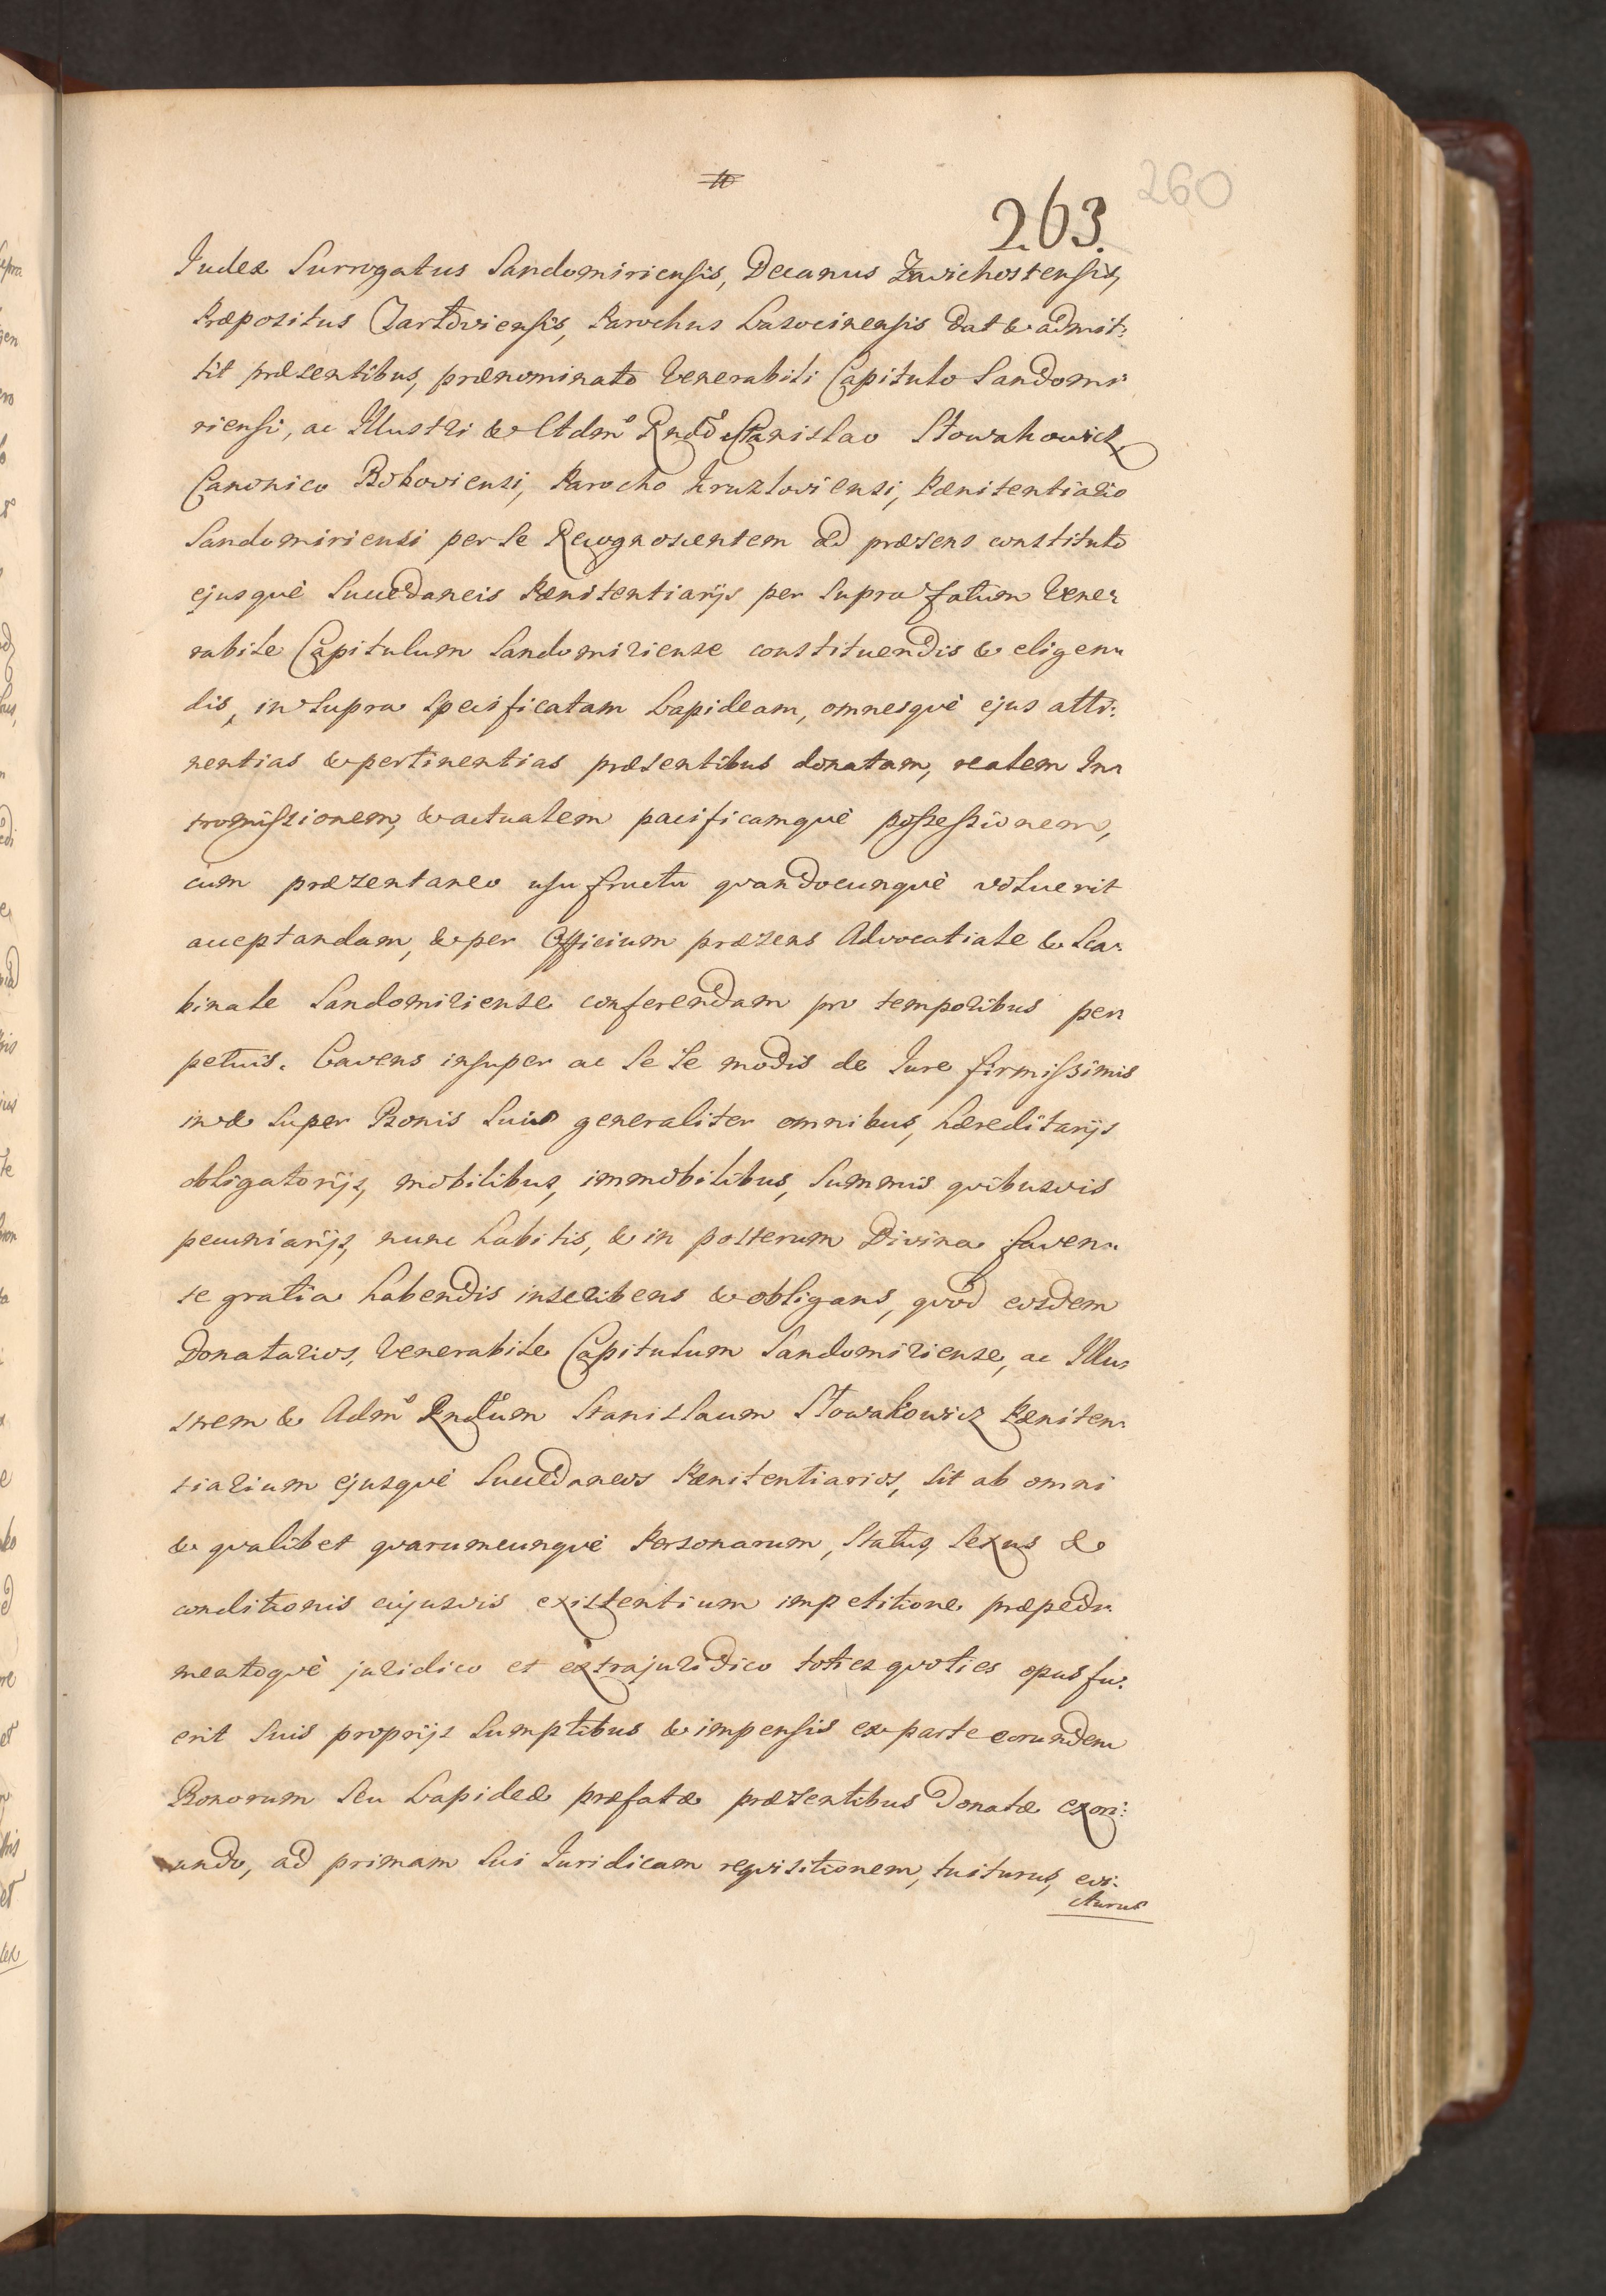 260
263.
Iudex Surrogatus Sandomiriensis, Decanus Zavichostensis,
Præpositus Czartoviensis, Parochus Lasocinensis dat & admit:
tit præsentibus, prænominato Venerabili Capitulo Sandomi
riensi, ac Illustri & Admo Rndo Stanislao Słowakowicz
Canonico Bokoviensi, Parocho Kruzloviensi, Pænitentiario
Sandomiriensi per se Recognoscentem ad præsens constituto
ejusquè Succedaneis Pænitentiarijs per supra fatum Vene-
rabile Capitulum Sandomiriense constituendis & eligen-
dis, in supra specificatam Lapideam, omnesquè ejus atti:
nentias & pertinentias præsentibus donatam, realem In-
tromissionem, & actualem pacificamquè possessionem,
cum præsentaneo usu fructu quandocunquè voluerit
acceptandam, & per Officium præsens Advocatiale & Sca-
binale Sandomiriense conferendam pro temporibus per
petuis. Cavens insuper ac se se modis de Iure firmissimis
in & super Bonis suis generaliter omnibus, hæreditarijs
obligatorijs, mobilibus, immobilibus, summis quibusvis
pecuniarijs, nunc habitis, & in posterum Divina faven-
te gratia habendis inscribens & obligans, quod eosdem
Donatarios, Venerabile Capitulum Sandomiriense, ac Illus
trem & Admo Rndum Stanislaum Słowakowicz Pæniten-
tiarium ejusquè Succedaneos Pænitentiarios, sit ab omni
& qualibet quarumcunquè Personarum, Status, Sexus &
conditionis cujusvis existentium impetitione præpedi-
mentoquè juridico et extrajuridico toties quoties opus fu:
erit suis proprijs sumptibus & impensis ex parte eorundem
Bonorum seu Lapideæ præfatæ præsentibus Donatæ exori:
undo, ad primam sui Iuridicam requisitionem, tuiturus, evi:
cturus